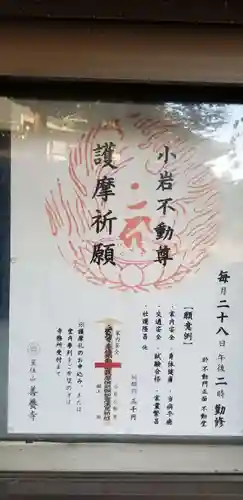 小岩不動尊
護摩祈願
毎月二十八日午後二時勤修
於不動門正面 不動堂
【願意例】
・家内安全 ・身体健康 ・当病平癒
・交通安全 ・試験合格 ・家業繁昌
・社運隆昌 他
祈願料 三千円
家内安全
※護摩札のお申込み、または
堂内参列をご希望の方は
寺務所受付まで
星住山 善養寺